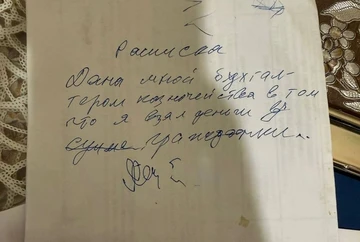 Расписка
Дана мной бухгал-
тером казначейства в том
что я взял деньги в
сумме